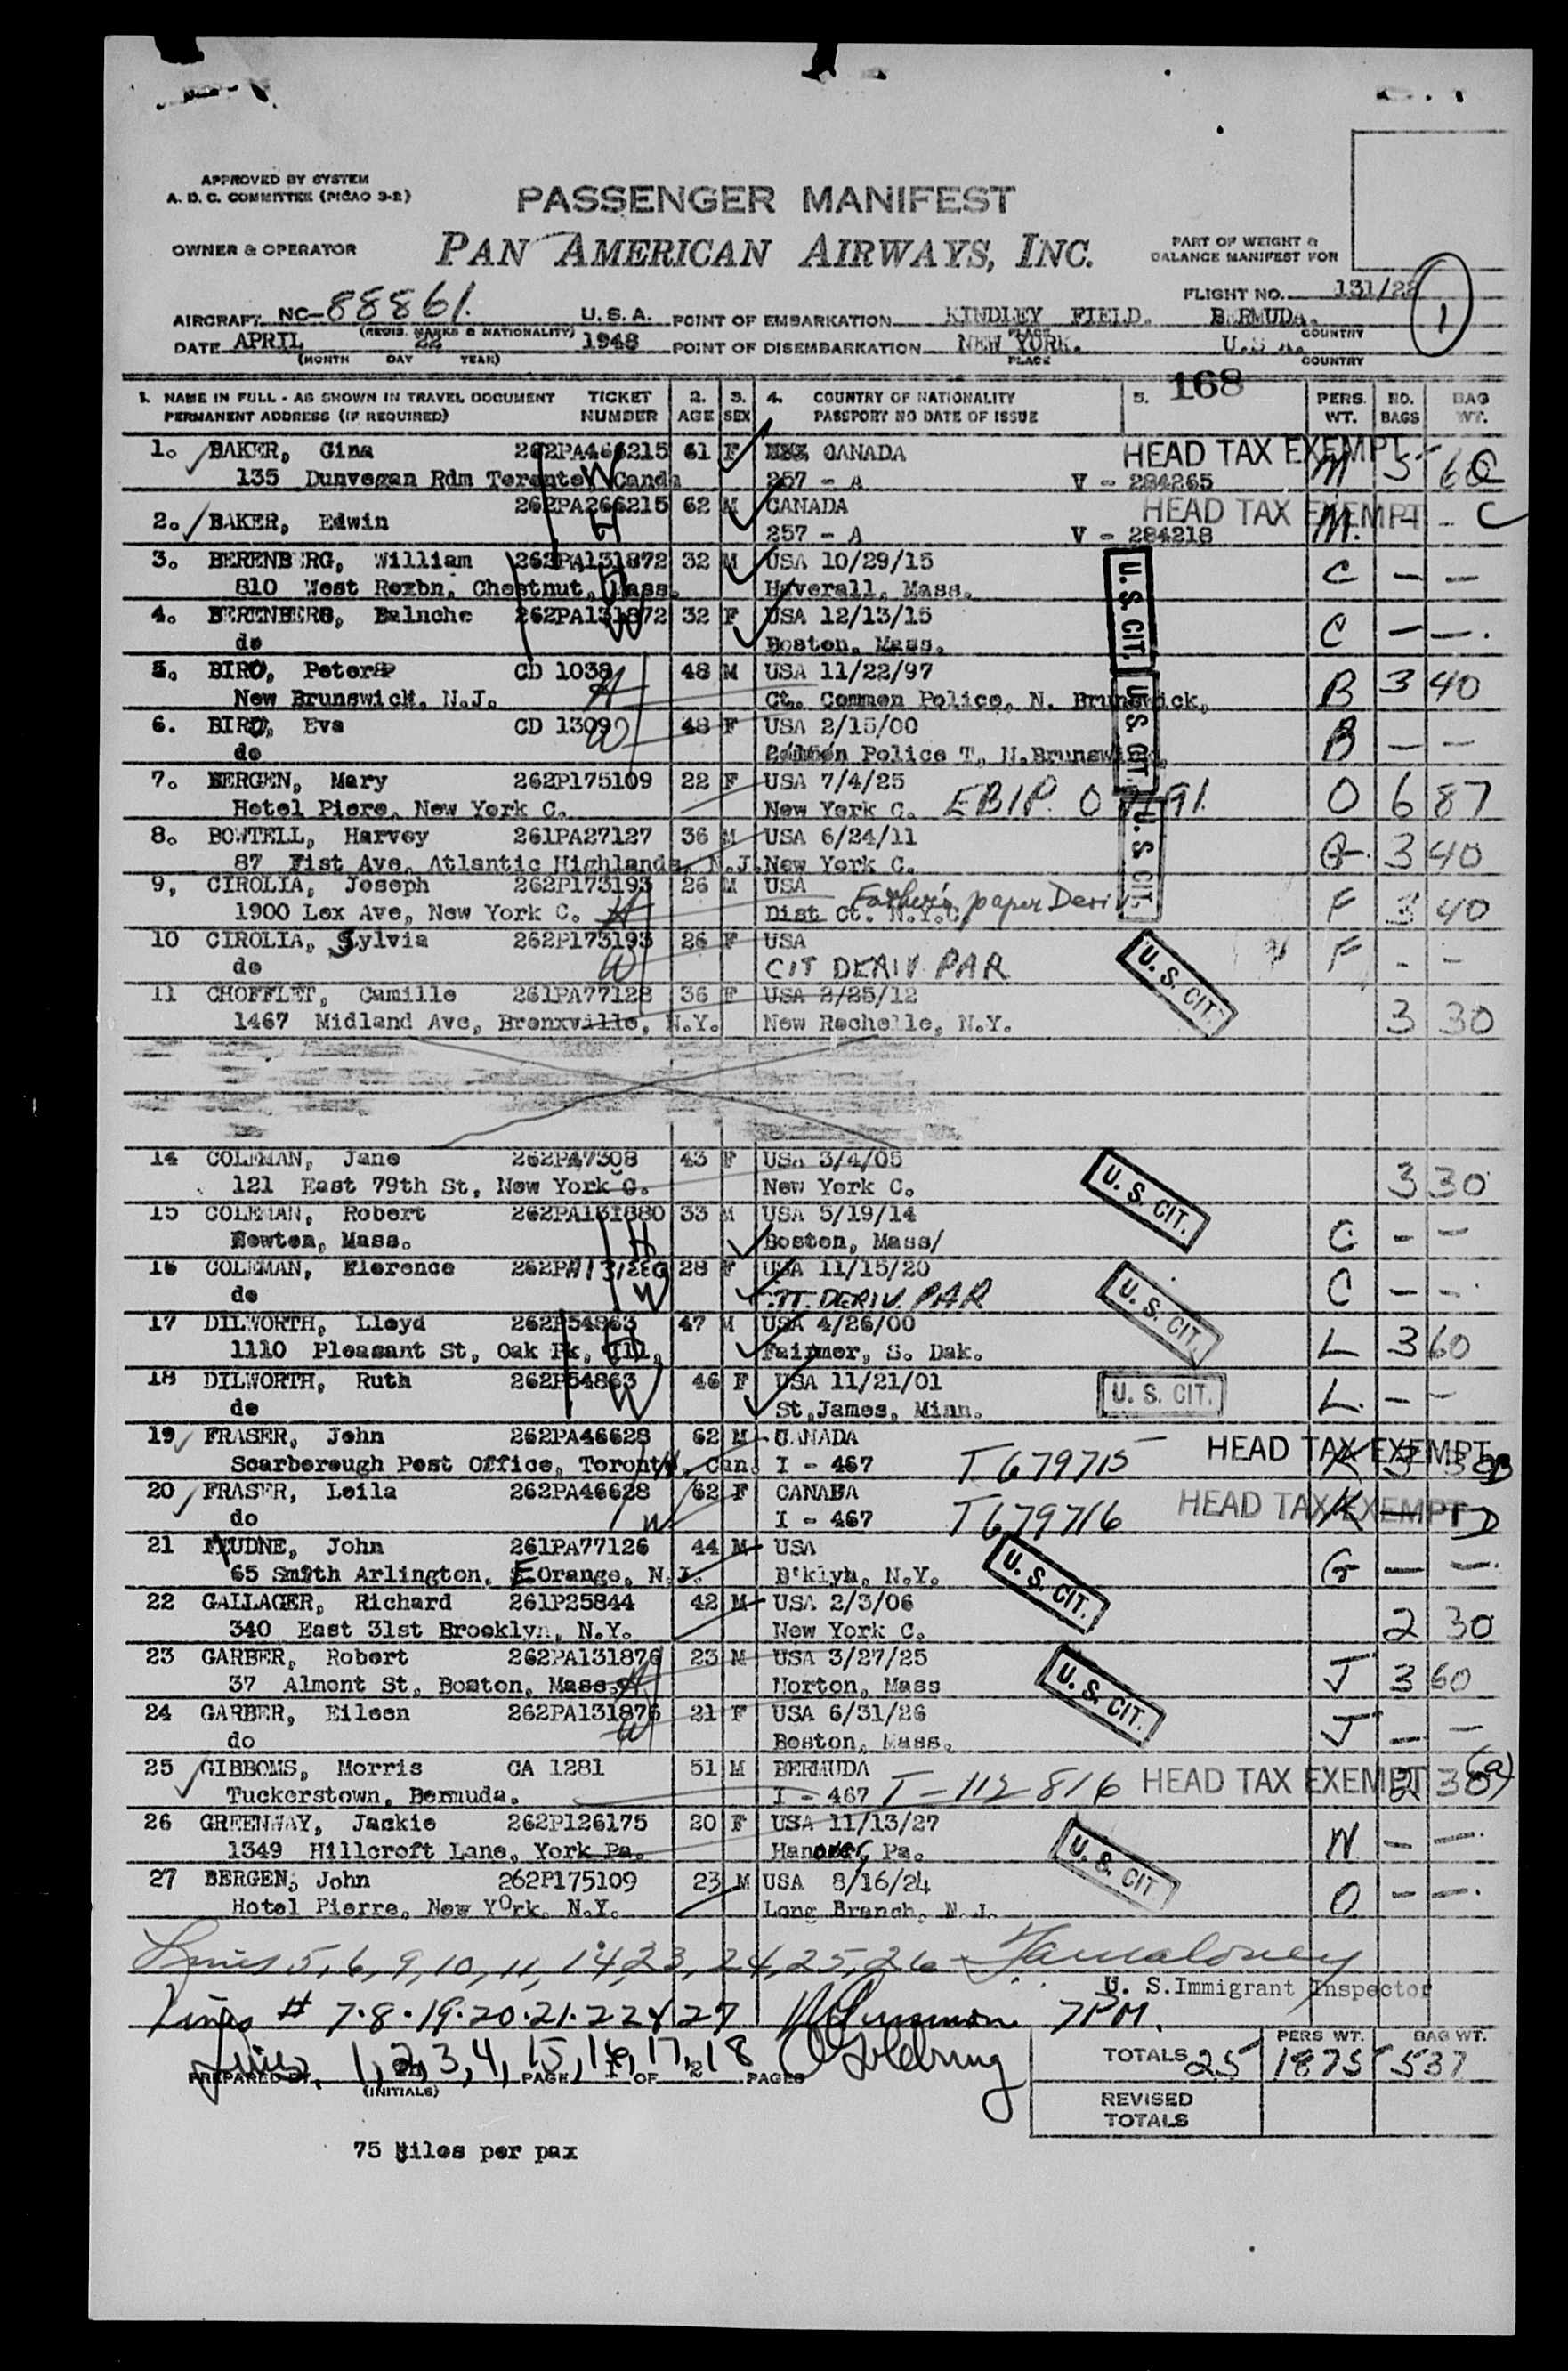 APPROVED BY SYSTEM
A. D. C. COMMITTEE (PICAO 3-2)
PASSENGER MANIFEST
OWNER & OPERATOR
PAN AMERICAN AIRWAYS, INC.
PART OF WEIGHT &
BALANCE MANIFEST FOR
FLIGHT NO. 131/22
1
AIRCRAFT NC-88861. U. S. A. POINT OF EMBARKATION KINDLEY FIELD. BERMUDA.
(REGIS. MARKS & NATIONALITY) PLACE COUNTRY
DATE APRIL 22 1948 POINT OF DISEMBARKATION NEW YORK. U.S A.
(MONTH DAY YEAR) PLACE COUNTRY
168
1. NAME IN FULL - AS SHOWN IN TRAVEL DOCUMENT TICKET 2. 3. 4. COUNTRY OF NATIONALITY 5. PERS. NO. BAG
PERMANENT ADDRESS (IF REQUIRED) NUMBER AGE SEX PASSPORT NO DATE OF ISSUE WT. BAGS WT.
1. BAKER, Gina 262PA466215 61 F CANADA HEAD TAX EXEMPT M 5 60 C
135 Dunvegan Rdm Toronto Canda W 257 - A V - 284265
2. BAKER, Edwin 262PA266215 62 M CANADA HEAD TAX EXEMPT M. - - C
H 257 - A V - 284218
3. BERENBERG, William 262PA131872 32 M USA 10/29/15 U. S. CIT. C - -
810 West Roxbn, Chestnut, Mass. H Haverall, Mass.
4. BERENBERG, Balnche 262PA131872 32 F USA 12/13/15 C - -.
do W Boston, Mass.
5. BIRO, Peter CD 1038 48 M USA 11/22/97 U. S. CIT. B 3 40
New Brunswick. N.J. H Ct. Common Police, N. Brunswick,
6. BIRO, Eva CD 1309 48 F USA 2/15/00 B - -
do W Police T, N.Brunswick,
7. BERGEN, Mary 262P175109 22 F USA 7/4/25 O 6 87
Hotel Piere, New York C. New York C. EBIP.
8. BOWTELL, Harvey 261PA27127 36 M USA 6/24/11 U. S. CIT. 3 40
87 Fist Ave, Atlantic Highlands, N.J. New York C.
9, CIROLIA, Joseph 262P173193 26 M USA Father's paper Deriv F 3 40
1900 Lex Ave, New York C. H Dist Ct. N.Y.C.
10 CIROLIA, Sylvia 262P173193 26 F USA U. S. CIT. F - -
do W CIT DERIV. PAR
11 CHOFFLET, Camille 261PA77128 36 F USA 2/25/12
1467 Midland Ave, Bronxville, N.Y. New Rochelle, N.Y. 3 30
14 COLEMAN, Jane 262PA7308 43 F USA 3/4/05 U. S. CIT. 3 30
121 East 79th St, New York C. New York C.
15 COLEMAN, Robert 262PA131880 33 M USA 5/19/14 C - -
Newton, Mass. H Boston, Mass/
16 COLEMAN, Florence 28 F USA 11/15/20 U. S. CIT. C - -
do W CIT. DERIV. PAR
17 DILWORTH, Lloyd 262P54863 47 M USA 4/26/00 L 3 60
1110 Pleasant St, Oak Pk, Ill, H Fairmer, S. Dak.
18 DILWORTH, Ruth 262P54863 46 F USA 11/21/01 U. S. CIT. L. - -
do W St.James, Minn.
19 FRASER, John 262PA46628 62 M CANADA HEAD TAX EXEMPT K 3 30
Scarborough Post Office, Toronto, Can. H I - 467 T 679715
20 FRASER, Leila 262PA46628 62 F CANADA HEAD TAX EXEMPT K D
do W I - 467 T 679716
21 FUDNE, John 261PA77126 44 M USA U. S. CIT. G - -.
65 Smith Arlington, E Orange, N.J. B'klyn, N.Y.
22 GALLAGER, Richard 261P25844 42 M USA 2/3/06 2 30
340 East 31st Brooklyn, N.Y. New York C.
23 GARBER, Robert 262PA131876 23 M USA 3/27/25 U. S. CIT. J 3 60
37 Almont St, Boston, Mass. H Norton, Mass
24 GARBER, Eileen 262PA131876 21 F USA 6/31/26 J - -
do W Boston, Mass.
25 GIBBONS, Morris CA 1281 51 M BERMUDA HEAD TAX EXEMPT 2 30 (a)
Tuckerstown, Bermuda. I - 467 T - 112 816
26 GREENWAY, Jackie 262P126175 20 F USA 11/13/27 U. S. CIT N - -.
1349 Hillcroft Lane, York Pa. Hanover, Pa.
27 BERGEN, John 262P175109 23 M USA 8/16/24 O - -.
Hotel Pierre, New York, N.Y. Long Branch, N.J.
Lines 5, 6, 9, 10, 11, 14, 23, 24, 25, 26
U. S.Immigrant Inspector
Lines # 7.8.19.20.21.22 & 27 7PM.
Lines 1, 2, 3, 4, 15, 16, 17, 18
PREPARED BY (INITIALS) PAGE 1 OF 2 PAGES
PERS WT. BAG WT.
TOTALS 25 1875 537
REVISED
TOTALS
75 kilos per pax